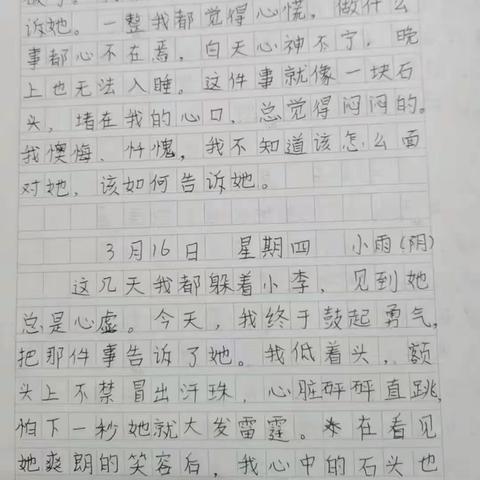 诉她。一整我都觉得心慌，做什么
事都心不在焉，白天心神不宁，晚
上也无法入睡。这件事就像一块石
头，堵在我的心口，总觉得闷闷的。
我懊悔、忏愧，我不知道该怎么面
对她，该如何告诉她。
3月16日 星期四 小雨(阴)
这几天我都躲着小李，见到她
总是心虚。今天，我终于鼓起勇气，
把那件事告诉了她。我低着头，额
头上不禁冒出汗珠，心脏砰砰直跳，
怕下一秒她就大发雷霆。在看见
她爽朗的笑容后，我心中的石头也